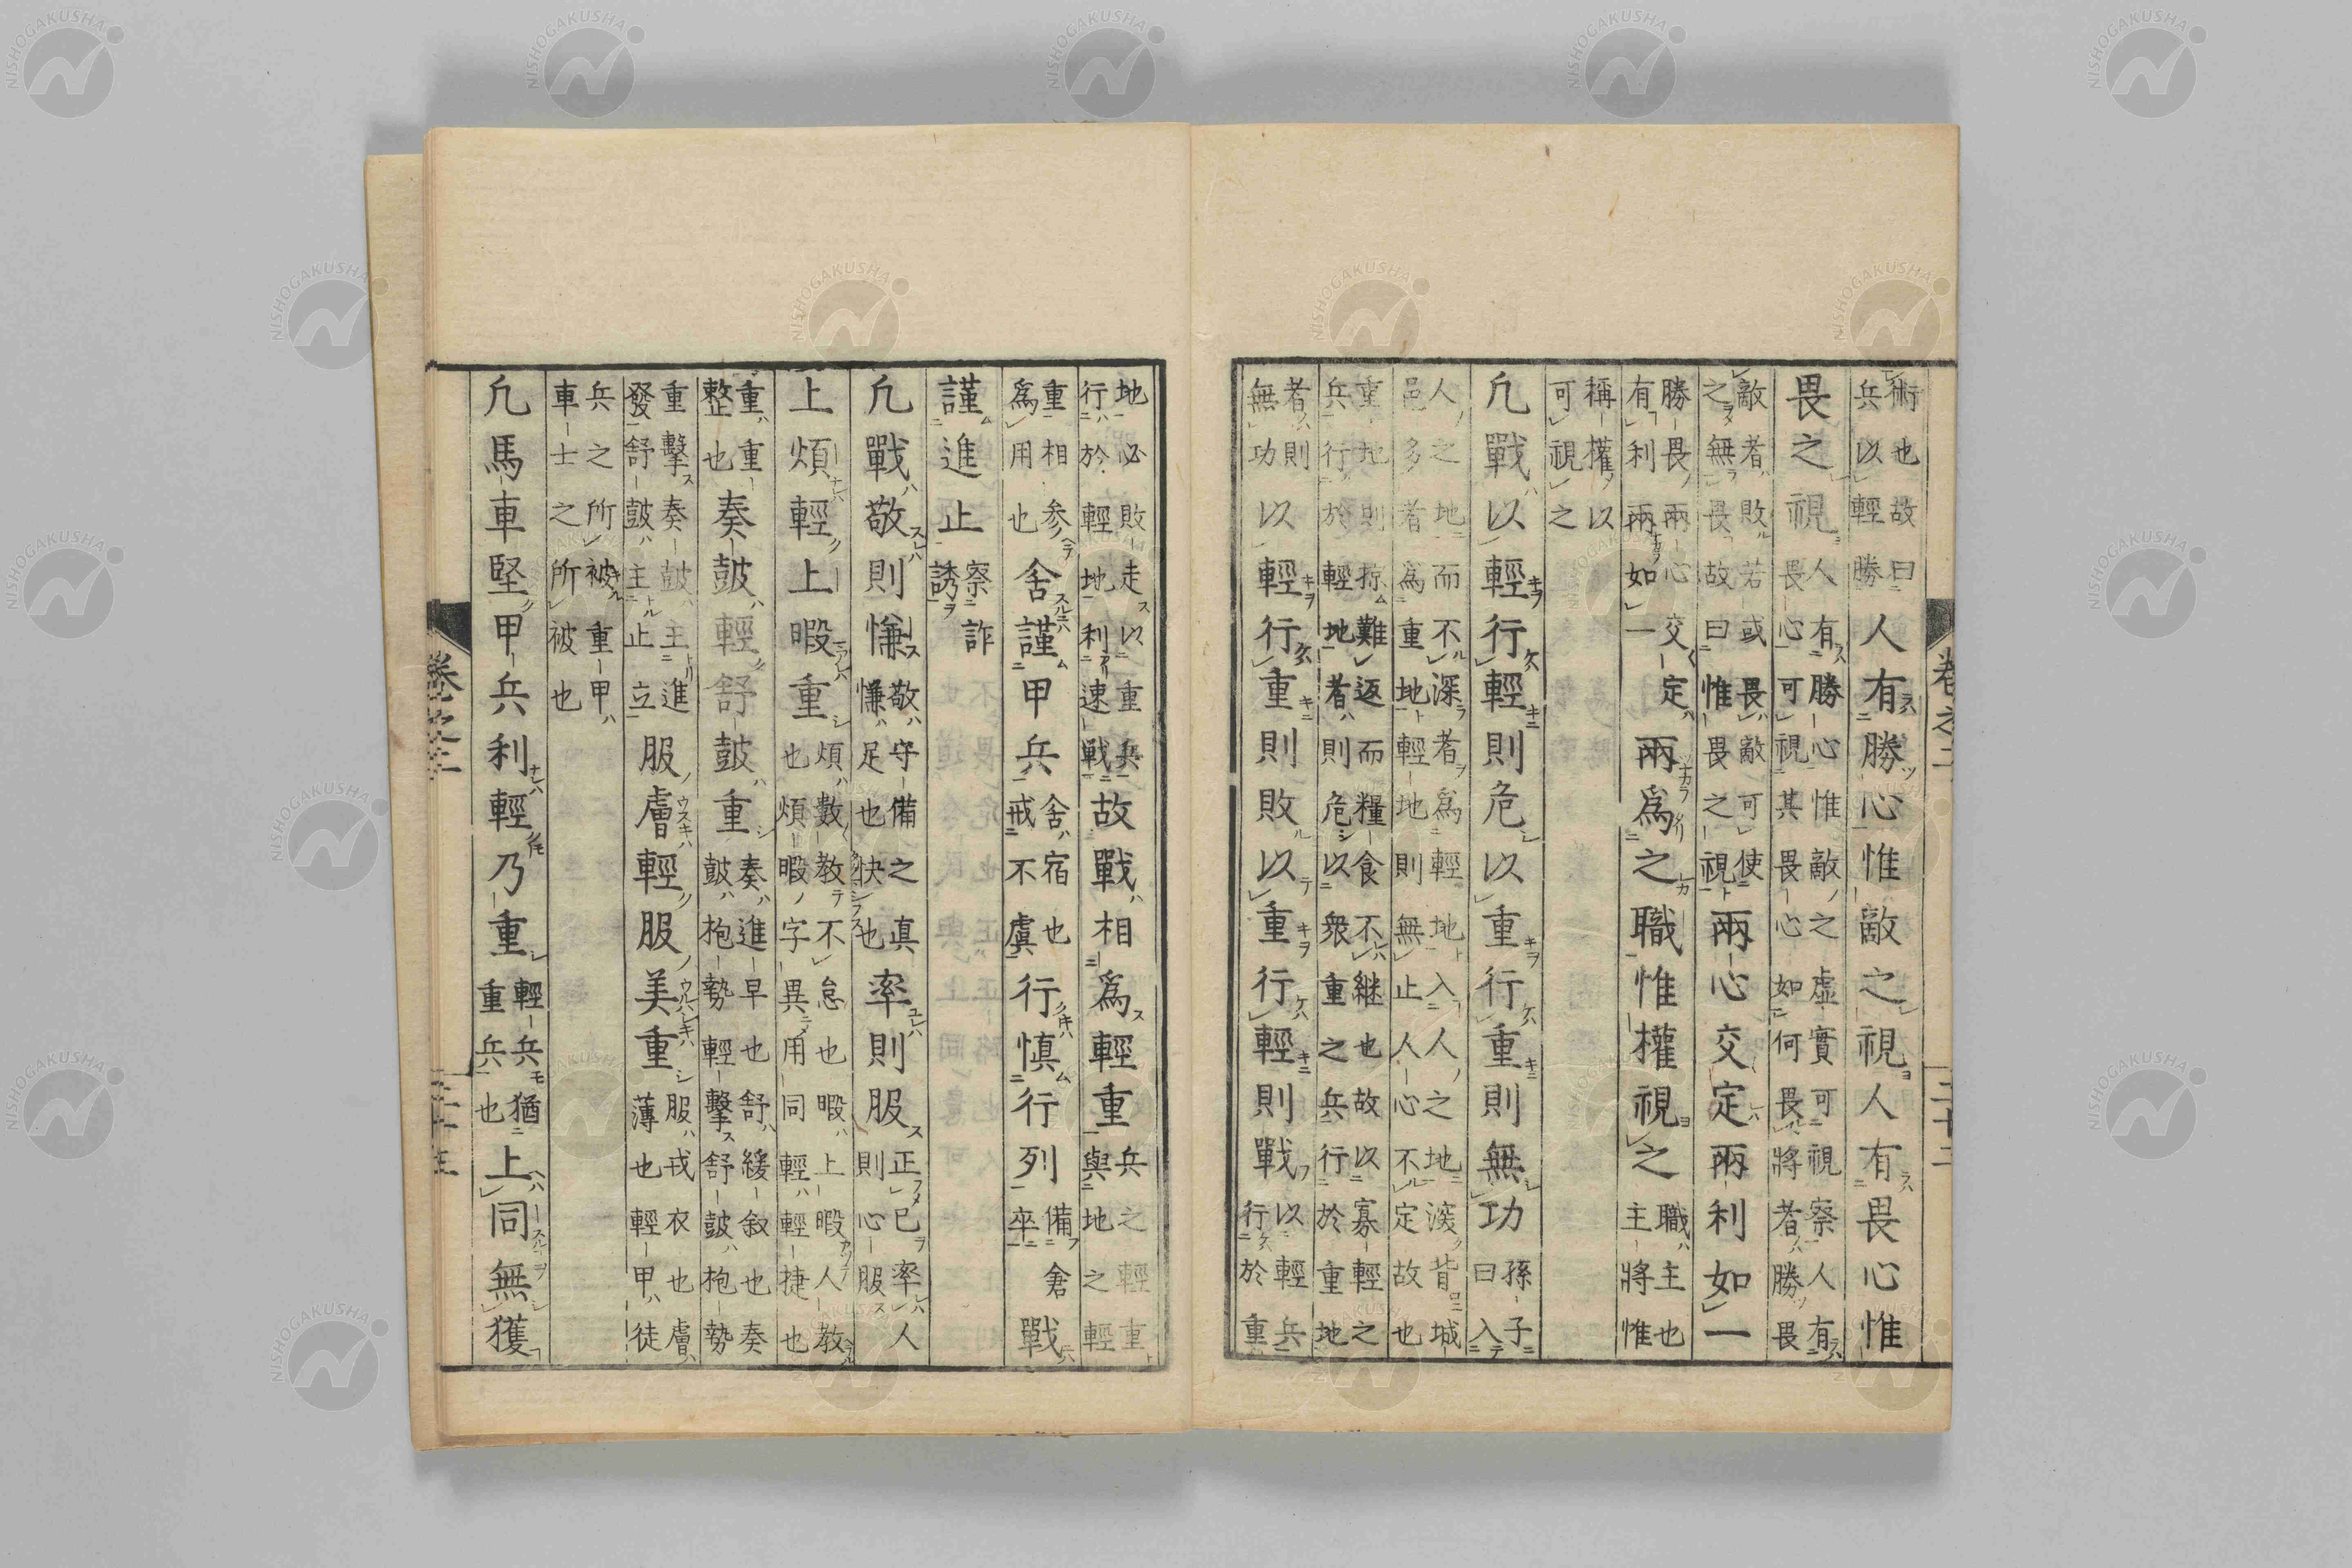 卷之二
三十二
術也故曰
兵以輕勝
人有勝心惟敵之視人有畏心惟
畏之視
人有勝心惟敵之虚實可視察人有
畏心可視其畏心如何畏將者勝畏
敵者敗若或畏敵可使
之無畏故曰惟畏之視
兩心交定兩利如一
勝畏兩心交定
有利兩如一
兩爲之職惟權視之
職主也
主將惟
稱權以
可視之
凢戰以輕行輕則危以重行重則無功
孫子
曰入
人之地而不深者爲輕地入人之地深背城
邑多者爲重地輕地則無止人心不定故也
重地則掠難返而糧食不継也故以寡輕之
兵行於輕地者則危以衆重之兵行於重地
者則
無功
以輕行重則敗以重行輕則戰
以輕兵
行於重
地必敗走以重兵
行於輕地利速戰
故戰相爲輕重
兵之輕重
與地之輕
重相参
爲用也
舍謹甲兵
舍宿也
戒不虞
行慎行列
備倉
卒
戰
謹進止
察詐
誘
凢戰敬則慊
敬守備之眞
慊足也快也
率則服
正已率人
則心服
上煩輕上暇重
煩數教不怠也暇上暇人教
也煩暇字異用同輕輕捷也
重重
整也
奏鼓輕舒鼓重
奏進早也舒緩叙也奏
鼓抱勢輕擊舒鼓抱勢
重擊奏鼓主進
發舒鼓主止立
服膚輕服美重
服戎衣也膚
薄也輕甲徒
兵之所被重甲
車士之所被也
凢馬車堅甲兵利輕乃重
輕兵猶
重兵也
上同無獲